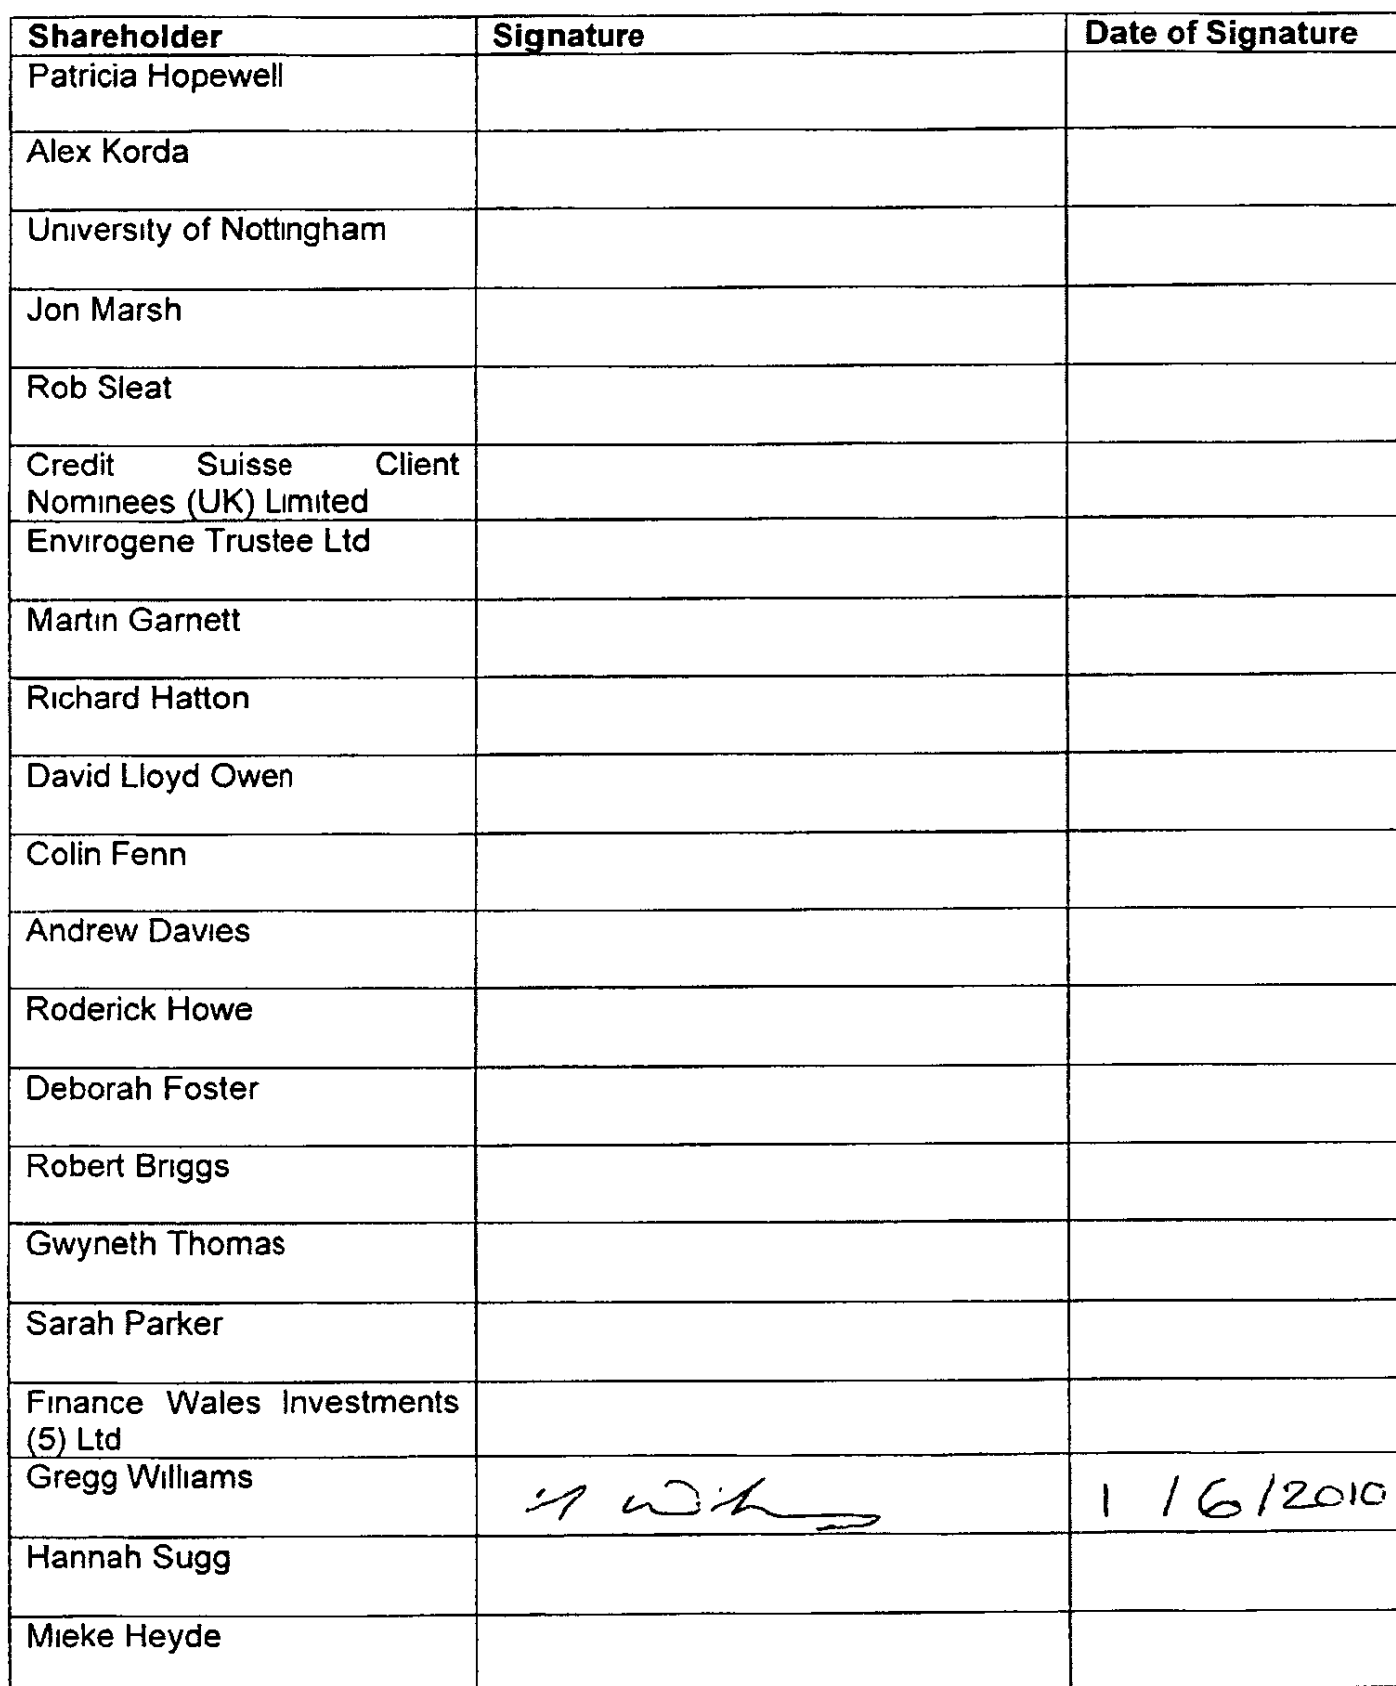 Shareholder Signature Date of Signature
Patricia Hopewell
Alex Korda
University of Nottingham
Jon Marsh
Rob Sleat
Credit Suisse Client
Nominees (UK) Limited
Envirogene Trustee Ltd
Martin Garnett
Richard Hatton
David Lloyd Owen
Colin Fenn
Andrew Davies
Roderick Howe
Deborah Foster
Robert Briggs
Gwyneth Thomas
Sarah Parker
Finance Wales Investments
(5) Ltd
Gregg Williams 1/6/2010
Hannah Sugg
Mieke Heyde